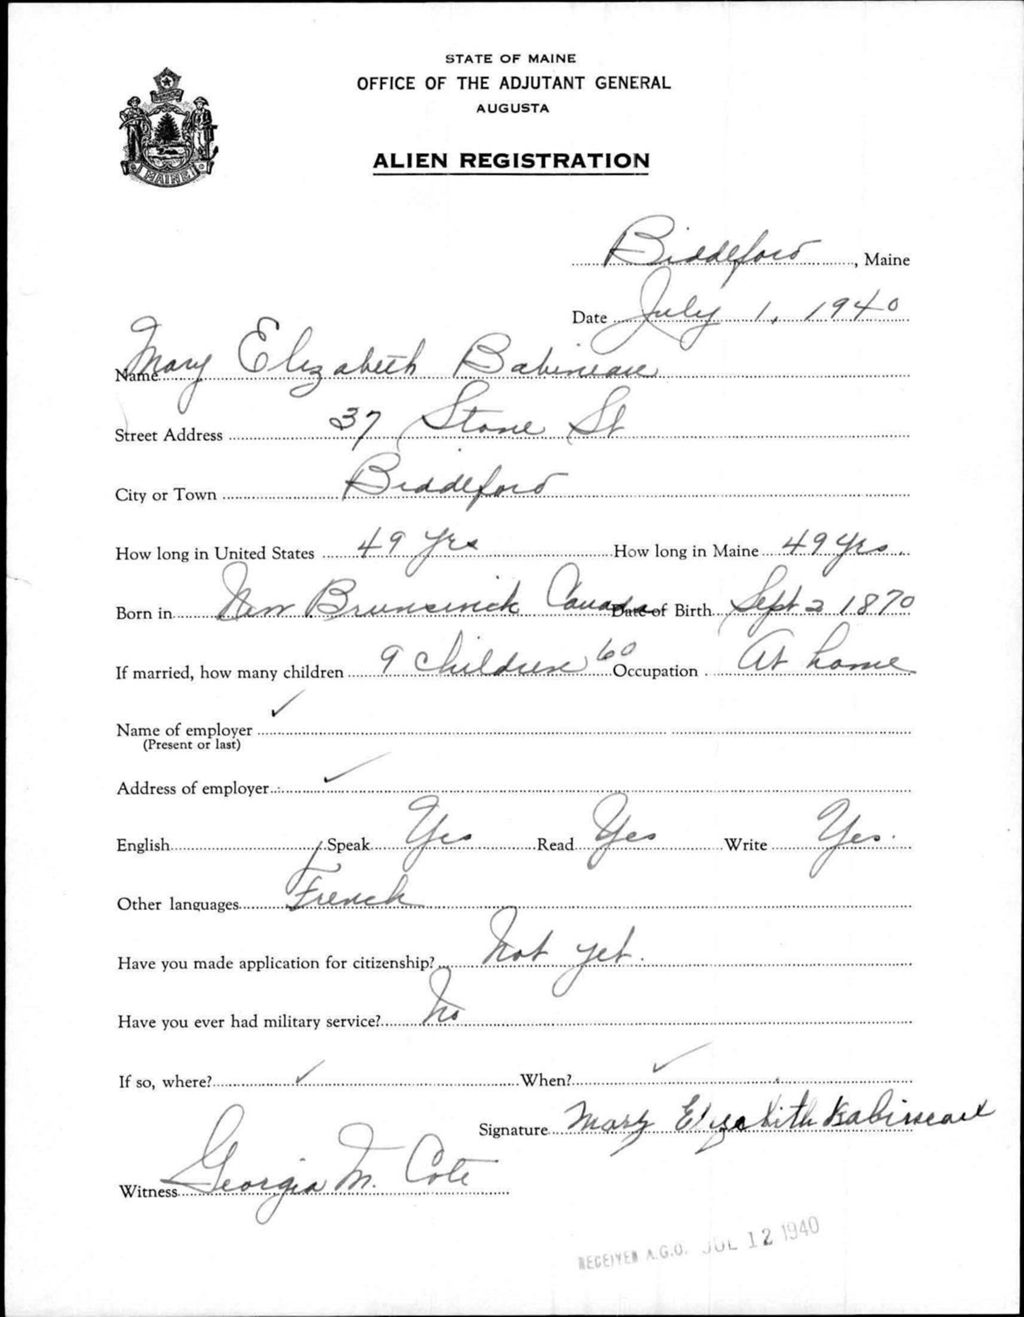 STATE OF MAINE
OFFICE OF THE ADJUTANT GENERAL
AUGUSTA
MAINE
ALIEN REGISTRATION
Biddeford, Maine
Date July 1, 1940
Name Mary Elizabeth Babineau
Street Address 37 Stone St
City or Town Biddeford
How long in United States 49 yrs How long in Maine 49 yrs.
Born in New Brunswick Canada Date of Birth Sept 2 1870
If married, how many children 9 children 60 Occupation At home
Name of employer
(Present or last)
Address of employer
English Speak Yes Read Yes Write Yes.
Other languages French
Have you made application for citizenship? Not yet.
Have you ever had military service? No
If so, where? When?
Signature Mary Elizabeth Babineau
Witness Georgia M. Cote
RECEIVED A.G.O. JUL 12 1940